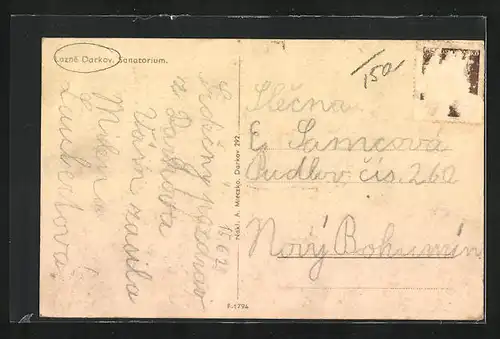 Lázně Darkov. Sanatorium.
150
Srdečný pozdrav
z Darkova
Vám zasílá
Milena
Laubertová
Nákl. A. Mleczko, Darkov 292.
Slečna
E. Samcová
Pudlov čís. 260
Nový Bohumín
F-1794